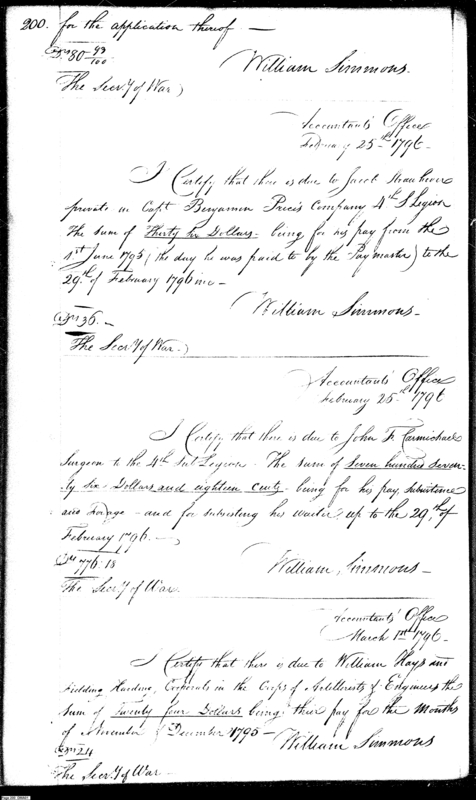 200. for the application thereof —
Drs 80 93/100
William Simmons.
The Secry of War)
Accountants Office
February 25th 1796.
I Certify that there is due to Jacob
private in Capt Benjamin Price's Company 4th S Legion
The Sum of Thirty Six Dollars. being for his pay from the
1st June 1795 (the day he was paid to by the Paymaster) to the
29th of February 1796 inc —
William Simmons —
Drs 36. —
The Secry of War.)
Accountants Office
February 25th 1796
I Certify that there is due to John F Carmichael
Surgeon to the 4th Sub Legion. The Sum of Seven hundred Seven-
ty Six Dollars and eighteen Cents. being for his pay, subsistence
and Forage — and for subsisting his waiter, up to the 29th of
February 1796. —
Drs 776.18
William Simmons —
The Secry of War.
Accountants Office
March 1st 1796 —
I Certify that there is due to William Hays and
Fielding Harding, Corporals in the Corps of Artillerists & Engineers the
Sum of Twenty four Dollars being their pay for the Months
of November & December 1795 —
William Simmons
Drs 24
The Secry of War —